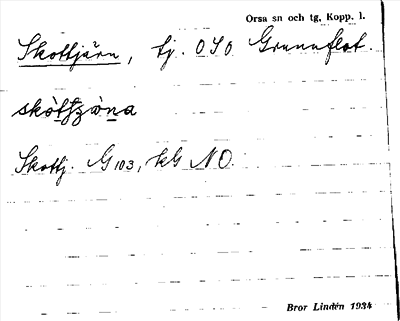 Orsa sn och tg, Kopp. l.
Skottjärn, tj. OSO Grunnflot.
Skottj. G 103, kG NO.
Bror Lindén 1934